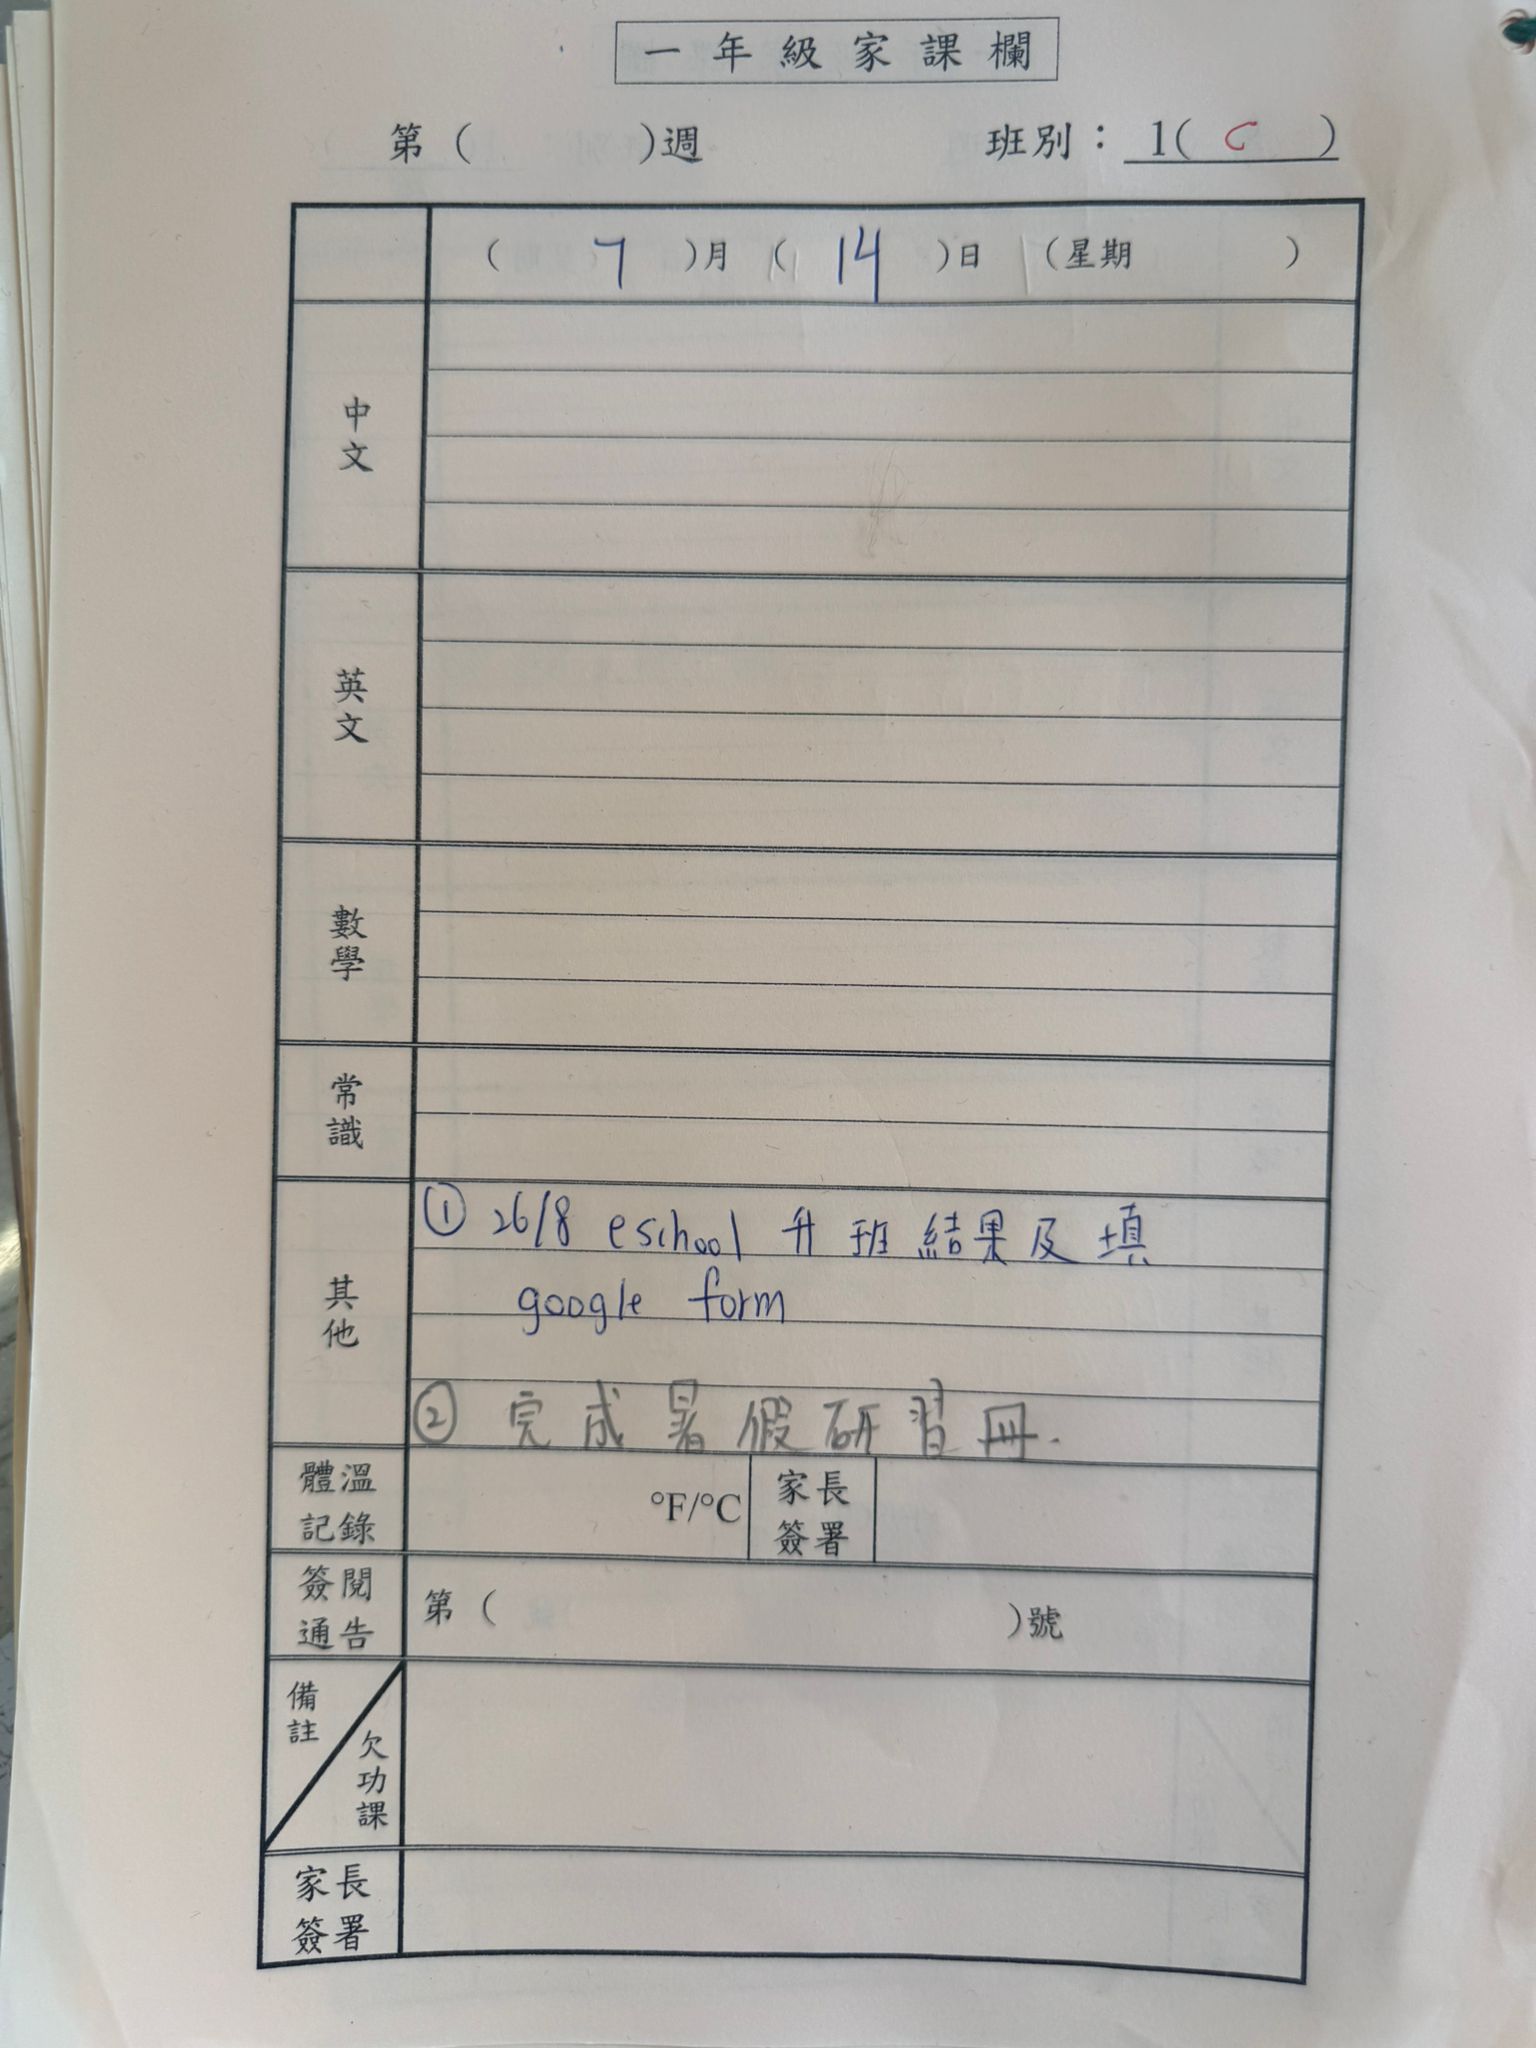 一年級家課欄
第（ ）週 班別：1( C )
（ 7 ）月（ 14 ）日（星期 ）
中文
英文
數學
常識
其他
① 26/8 eschool 升班結果及填
google form
② 完成暑假研習冊.
體溫記錄 °F/°C 家長簽署
簽閱通告 第（ ）號
備註 欠功課
家長簽署